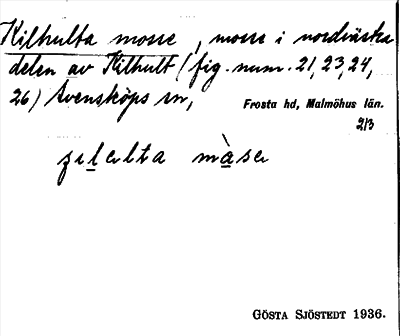 Kilhulta mosse, mosse i nordvästra
delen av Kilhult (fig. num. 21, 23, 24,
26) Svensköps sn,
Frosta hd, Malmöhus län.
2/3
màse
GÖSTA SJÖSTEDT 1936.